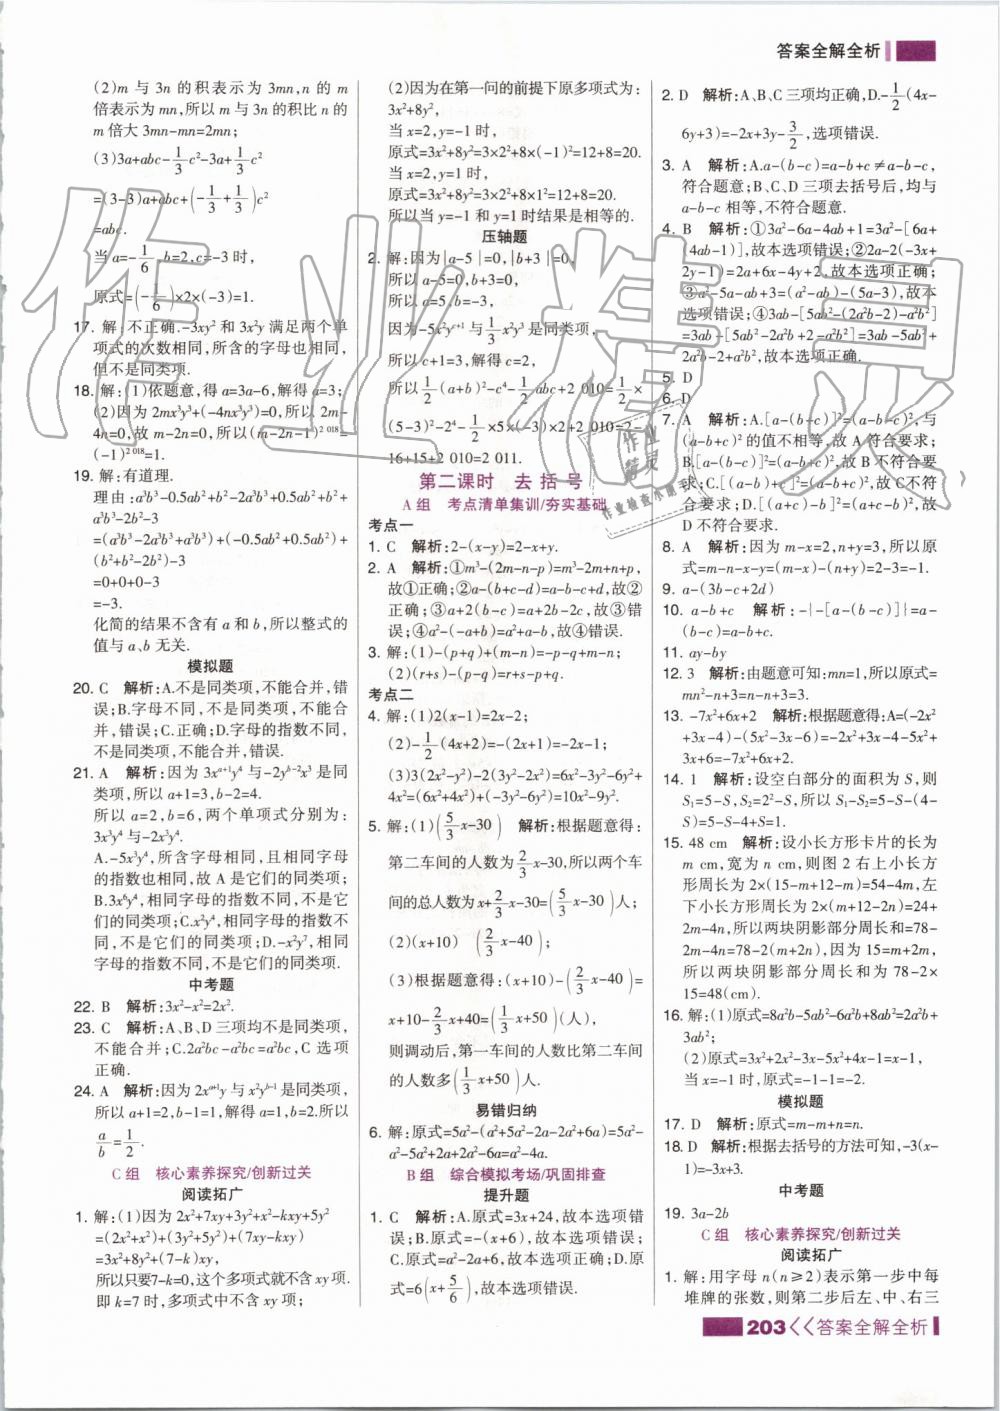 答案全解全析
(2)m 与 3n 的积表示为 3mn,n 的 m
倍表示为 mn,所以 m 与 3n 的积比 n 的
m 倍大 3mn-mn=2mn;
(3)3a+abc-1/3c²-3a+1/3c²
=(3-3)a+abc+(-1/3+1/3)c²
=abc.
当 a=-1/6,b=2,c=-3 时,
原式=(-1/6)×2×(-3)=1.
17. 解:不正确.-3xy² 和 3x²y 满足两个单
项式的次数相同,所含的字母也相同,
但不是同类项.
18. 解:(1)依题意,得 a=3a-6,解得 a=3;
(2)因为 2mx³y³+(-4nx³y³)=0,所以 2m-
4n=0,故 m-2n=0,所以(m-2n-1)²⁰¹⁸=
(-1)²⁰¹⁸=1.
19. 解:有道理.
理由:a³b³-0.5ab²+b²-2a³b³+0.5ab²+b²+
a³b³-2b²-3
=(a³b³-2a³b³+a³b³)+(-0.5ab²+0.5ab²)+
(b²+b²-2b²)-3
=0+0+0-3
=-3.
化简的结果不含有 a 和 b,所以整式的
值与 a、b 无关.
模拟题
20. C 解析:A.不是同类项,不能合并,错
误;B.字母不同,不是同类项,不能合
并,错误;C.正确;D.字母的指数不同,
不是同类项,不能合并,错误.
21. A 解析:因为 3xᵃ⁺¹y⁴ 与-2yᵇ⁻²x³ 是同
类项,所以 a+1=3,b-2=4.
所以 a=2,b=6,两个单项式分别为:
3x³y⁴ 与-2x³y⁴.
A.-5x³y⁴,所含字母相同,且相同字母
的指数也相同,故 A 是它们的同类项;
B.3x⁶y⁴,相同字母的指数不同,不是它
们的同类项;C.x²y⁴,相同字母的指数不
同,不是它们的同类项;D.-x²y²,相同
字母的指数不同,不是它们的同类项.
中考题
22. B 解析:3x²-x²=2x².
23. C 解析:A、B、D 三项均不是同类项,
不能合并;C.2a²bc-a²bc=a²bc,C 选项
正确.
24. A 解析:因为 2xᵃ⁺¹y 与 x²yᵇ⁻¹ 是同类项,
所以 a+1=2,b-1=1,解得 a=1,b=2.所以
a/b=1/2.
C 组 核心素养探究/创新过关
阅读拓广
1. 解:(1)因为 2x²+7xy+3y²+x²-kxy+5y²
=(2x²+x²)+(3y²+5y²)+(7xy-kxy)
=3x²+8y²+(7-k)xy,
所以只要7-k=0,这个多项式就不含 xy 项.
即 k=7 时,多项式中不含 xy 项;
(2)因为在第一问的前提下原多项式为:
3x²+8y²,
当 x=2,y=-1 时,
原式=3x²+8y²=3×2²+8×(-1)²=12+8=20.
当 x=2,y=1 时,
原式=3x²+8y²=3×2²+8×1²=12+8=20.
所以当 y=-1 和 y=1 时结果是相等的.
压轴题
2. 解:因为|a-5|=0,|b+3|=0,
所以 a-5=0,b+3=0,
所以 a=5,b=-3,
因为-5x²yᶜ⁺¹与1/3x²y³ 是同类项,
所以 c+1=3,解得 c=2,
所以1/2(a+b)²-c⁴-1/2abc+2 010=1/2×
(5-3)²-2⁴-1/2×5×(-3)×2+2 010=2-
16+15+2 010=2 011.
第二课时 去括号
A 组 考点清单集训/夯实基础
考点一
1. C 解析:2-(x-y)=2-x+y.
2. A 解析:①m³-(2m-n-p)=m³-2m+n+p,
故①正确;②a-(b+c-d)=a-b-c+d,故②
正确;③a+2(b-c)=a+2b-2c,故③错
误;④a²-(-a+b)=a²+a-b,故④错误.
3. 解:(1)-(p+q)+(m-n)=-p-q+m-n;
(2)(r+s)-(p-q)=r+s-p+q.
考点二
4. 解:(1)2(x-1)=2x-2;
(2)-1/2(4x+2)=-(2x+1)=-2x-1;
(3)3(2x²-y²)-2(3y²-2x²)=6x²-3y²-6y²+
4x²=(6x²+4x²)+(-3y²-6y²)=10x²-9y².
5. 解:(1)(5/3x-30) 解析:根据题意得:
第二车间的人数为2/3x-30,所以两个车
间的总人数为x+2/3x-30=(5/3x-30)人;
(2)(x+10) (2/3x-40);
(3)根据题意得:(x+10)-(2/3x-40)=
x+10-2/3x+40=(1/3x+50)(人),
则调动后,第一车间的人数比第二车间
的人数多(1/3x+50)人.
易错归纳
6. 解:原式=5a²-(a²+5a²-2a-2a²+6a)=5a²-
a²-5a²+2a+2a²-6a=a²-4a.
B 组 综合模拟考场/巩固排查
提升题
1. C 解析:A.原式=3x+24,故本选项错
误;B.原式=-(x+6),故本选项错误;
C.原式=a²-2a+6,故本选项正确;D.原
式=6(x+5/6),故本选项错误.
2. D 解析:A、B、C 三项均正确,D.-1/2(4x-
6y+3)=-2x+3y-3/2,选项错误.
3. A 解析:A.a-(b-c)=a-b+c≠a-b-c,
符合题意;B、C、D 三项去括号后,均与
a-b-c 相等,不符合题意.
4. B 解析:①3a²-6a-4ab+1=3a²-[6a+
(4ab-1)],故本选项错误;②2a-2(-3x+
2y-1)=2a+6x-4y+2,故本选项正确;
③a²-5a-ab+3=(a²-ab)-(5a-3),故本
选项错误;④3ab-[5ab²-(2a²b-2)-a²b²]
=3ab-[5ab²-2a²b+2-a²b²]=3ab-5ab²+
2a²b-2+a²b²,故本选项正确.
5. D
6. D
7. A 解析:A.[a-(b+c)]²=(a-b-c)²,与
(a-b+c)²的值不相等,故 A 符合要求;
B.[a-(b-c)]²=(a-b+c)²,故 B 不符合要
求;C.[(a-b)+c]²,故 C 不符合要求;D.[(a+c)-b]²=(a-b+c)²,
故 D 不符合要求.
8. A 解析:因为 m-x=2,n+y=3,所以原
式=m-n-x-y=(m-x)-(n+y)=2-3=-1.
9. a-(3b-c+2d)
10. a-b+c 解析:-{-[a-(b-c)]}=a-
(b-c)=a-b+c.
11. ay-by
12. 3 解析:由题意可知:mn=1,所以原式=
mn²-n+3=n-n+3=3.
13. -7x²+6x+2 解析:根据题意得:A=(-2x²
+3x-4)-(5x²-3x-6)=-2x²+3x-4-5x²+
3x+6=-7x²+6x+2.
14. 1 解析:设空白部分的面积为 S,则
S₁=5-S,S₂=2²-S,所以 S₁-S₂=5-S-(4-
S)=5-S-4+S=1.
15. 48 cm 解析:设小长方形卡片的长为
m cm,宽为 n cm,则图 2 右上小长方
形周长为 2×(15-m+12-m)=54-4m,左
下小长方形周长为 2×(m+12-2n)=24+
2m-4n,所以两块阴影部分周长和=78-
2m-4n=78-2(m+2n),因为 15=m+2n,
所以两块阴影部分周长和为 78-2×
15=48(cm).
16. 解:(1)原式=8a²b-5ab²-6a²b+8ab²=2a²b+
3ab²;
(2)原式=3x²+2x²-3x-5x²+4x-1=x-1,
当 x=-1 时,原式=-1-1=-2.
模拟题
17. D 解析:原式=m-m+n=n.
18. D 解析:根据去括号的方法可知,-3(x-
1)=-3x+3.
中考题
19. 3a-2b
C 组 核心素养探究/创新过关
阅读拓广
1. 解:用字母 n(n≥2)表示第一步中每
堆牌的张数,则第二步后左、中、右三
203<<答案全解全析
作业精灵